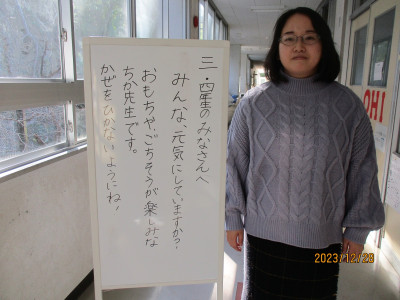 三・四年のみなさんへ
みんな、元気にしていますか?
おもちや、ごちそうが楽しみな
ちか先生です。
かぜをひかないようにね。
OHI
2023/12/26